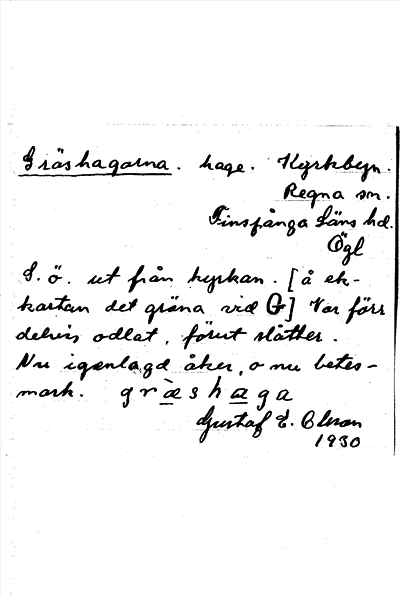 Gräshagarna. hage. Kyrkbyn.
Regna sn.
Finspånga Läns hd.
Ögl
S. ö. ut från kyrkan. [å ek-
kartan det gröna vid G] Var förr
delvis odlat, förut slåtter.
Nu igenlagd åker, o nu betes-
mark. græ̀shaga
Gustaf E. Olson
1930